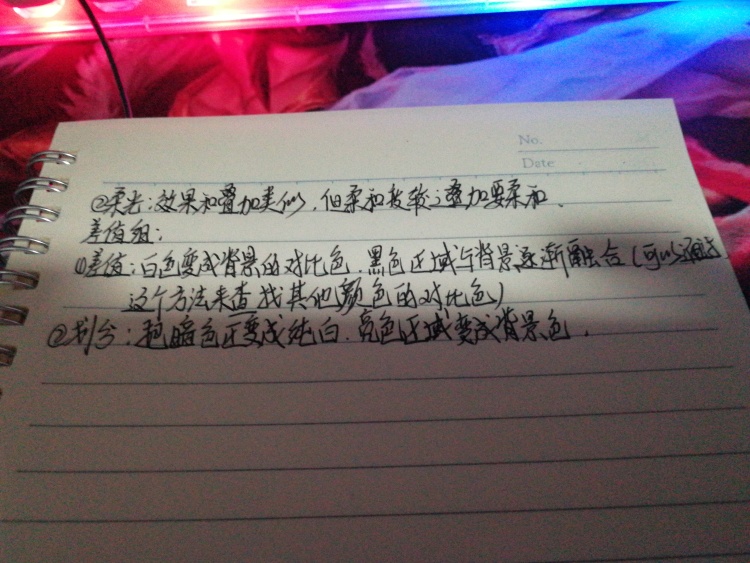 No.
Date
②柔光:效果和叠加类似,但柔和度较之叠加要柔和.
差值组:
①差值:白色变成背景的对比色.黑色区域与背景逐渐融合(可以通过
这个方法来查找其他颜色的对比色)
②划分:把暗色区变成纯白.亮色区域变成背景色.